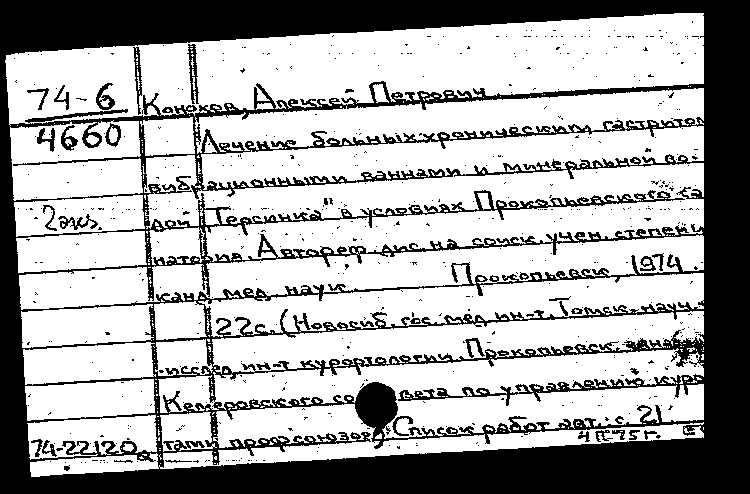 74-6
4660
2 экз.
Конохов, Алексей Петрович.
Лечение больных хроническим гастритом
вибрационными ваннами и минеральной во-
дой "Терсинка" в условиях Прокопьевского са-
натория. Автореф. дис. на соиск. учен. степени
канд. мед. наук. Прокопьевск, 1974.
22 с. (Новосиб. гос. мед. ин-т. Томск. науч.-
-исслед. ин-т курортологии. Прокопьевск.
Кемеровского совета по управлению куро
тами профсоюзов). Список работ авт.: с. 21.
74-22120а
4 IX 75 г.